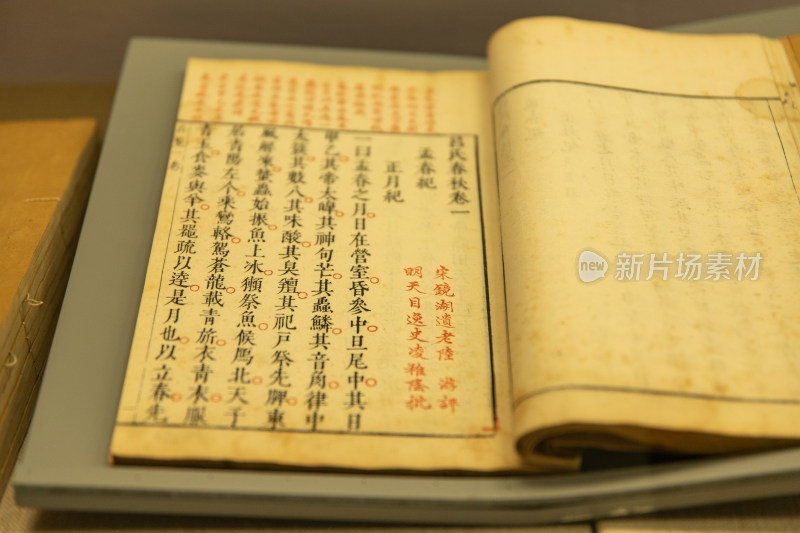 呂氏春秋卷一
孟春紀
正月紀
宋鏡湖遺老陸游評
明天目逸史凌稚隆批
一曰孟春之月日在營室昏參中旦尾中其日
甲乙其帝太皞其神句芒其蟲鱗其音角律中
太蔟其數八其味酸其臭羶其祀戶祭先脾東
風解凍蟄蟲始振魚上冰獺祭魚候鴈北天子
居青陽左个乘鸞輅駕蒼龍載青旂衣青衣服
青玉食麥與羊其器疏以達是月也以立春先
new 新片场素材